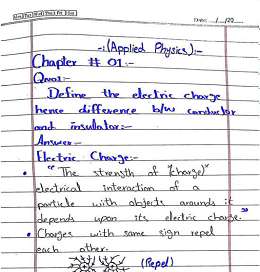 Date: __/__/20__
-:(Applied Physics):-
Chapter # 01:-
Qno1:-
Define the electric charge
hence difference b/w conductor
and insulator:-
Answer:-
Electric Charge:-
• "The strength of (charge)"
electrical interaction of a
particle with objects around it
depends upon its electric charge."
• Charges with same sign repel
each other.
(Repel)